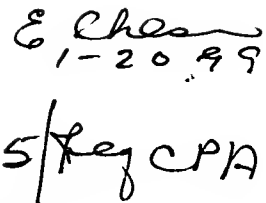 E Cheson
1-20.99
5/Reg CPA